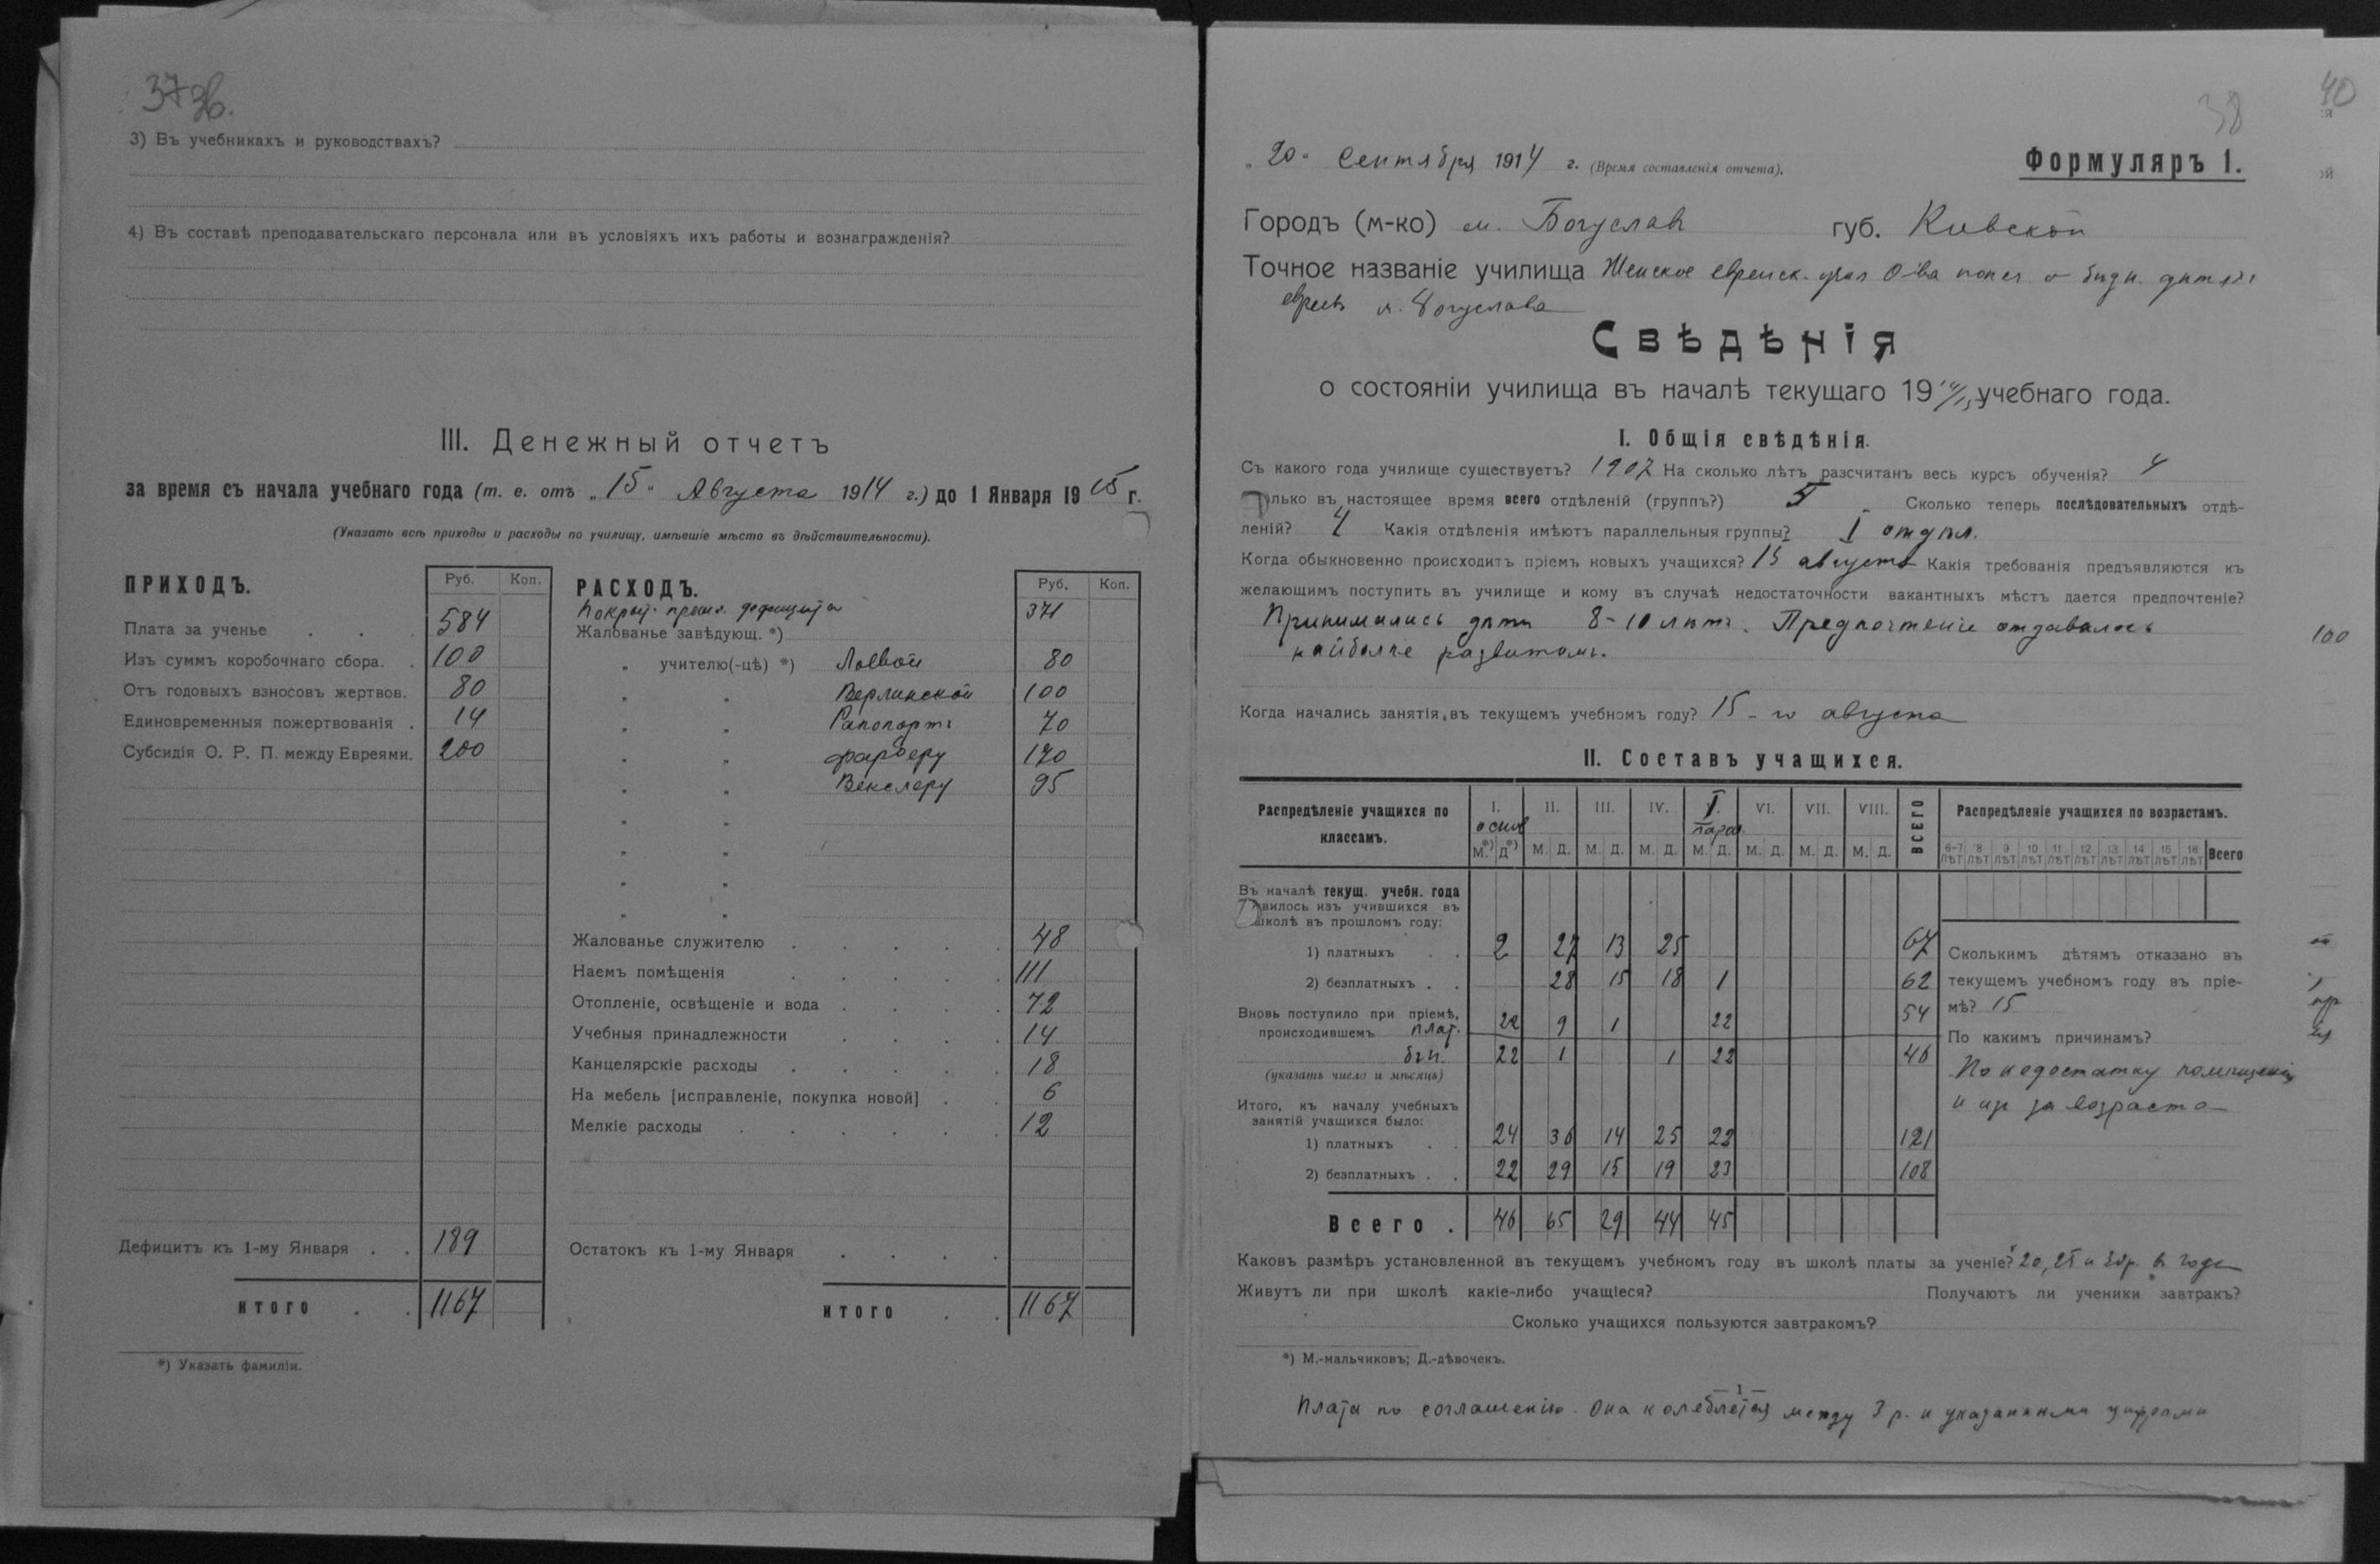 37 зв.
3) Въ учебникахъ и руководствахъ?
4) Въ составѣ преподавательскаго персонала или въ условіяхъ ихъ работы и вознагражденія?
III. Денежный отчетъ
за время съ начала учебнаго года (т. е. отъ „15" Августа 1914 г.) до 1 Января 1915 г.
(Указать всѣ приходы и расходы по училищу, имѣвшіе мѣсто въ дѣйствительности).
ПРИХОДЪ. Руб. Коп.
Плата за ученье . . . 584
Изъ суммъ коробочнаго сбора. . 100
Отъ годовыхъ взносовъ жертвов. 80
Единовременныя пожертвованія . 14
Субсидія О. Р. П. между Евреями. 200
Дефицитъ къ 1-му Января . . 189
ИТОГО . . 1167
*) Указать фамиліи.
РАСХОДЪ. Руб. Коп.
Покрыт. прошл. дефицита 371
Жалованье завѣдующ. *)
„ учителю(-цѣ) *) Лоевой 80
„ „ Верлинской 100
„ „ Рапопортъ 70
„ „ Фарберу 170
„ „ Векслеру 95
„ „
„ „
„ „
„ „
Жалованье служителю . . . . . 48
Наемъ помѣщенія . . . . . 111
Отопленіе, освѣщеніе и вода . . . . 72
Учебныя принадлежности . . . . 14
Канцелярскіе расходы . . . . . 18
На мебель [исправленіе, покупка новой] . . 6
Мелкіе расходы . . . . . . 12
Остатокъ къ 1-му Января . . . .
ИТОГО . . 1167
40
38
„20" Сентября 1914 г. (Время составленія отчета).
Формуляръ 1.
Городъ (м-ко) м. Богуслав губ. Киевской
Точное названіе училища Женское еврейск. учил О-ва попеч о бѣдн. дѣтяхъ
евреев м. Богуслава
Свѣдѣнія
о состояніи училища въ началѣ текущаго 1914/15 учебнаго года.
I. Общія свѣдѣнія.
Съ какого года училище существуетъ? 1907 На сколько лѣтъ разсчитанъ весь курсъ обученія? 4
олько въ настоящее время всего отдѣленій (группъ?) 5 . Сколько теперь послѣдовательныхъ отдѣ-
леній? 4 Какія отдѣленія имѣютъ параллельныя группы? I отдѣл.
Когда обыкновенно происходитъ пріемъ новыхъ учащихся? 15 августа Какія требованія предъявляются къ
желающимъ поступить въ училище и кому въ случаѣ недостаточности вакантныхъ мѣстъ дается предпочтеніе?
Принимались дѣти 8-10 лѣтъ. Предпочтеніе отдавалось
наиболѣе развитымъ.
100
Когда начались занятія въ текущемъ учебномъ году? 15-го августа
II. Составъ учащихся.
Распредѣленіе учащихся по классамъ. I. основ II. III. IV. I. парал. VI. VII. VIII. ВСЕГО
М.*) Д*) М. Д. М. Д. М. Д. М. Д. М. Д. М. Д. М. Д.
Въ началѣ текущ. учебн. года
явилось изъ учившихся въ
школѣ въ прошломъ году:
1) платныхъ . . 2 27 13 25 67
2) безплатныхъ . . 28 15 18 1 62
Вновь поступило при пріемѣ,
происходившемъ плат. 22 9 1 22 54
безп. 22 1 1 22 46
(указать число и мѣсяцъ)
Итого, къ началу учебныхъ
занятій учащихся было:
1) платныхъ . . 24 36 14 25 22 121
2) безплатныхъ . . 22 29 15 19 23 108
Всего . 46 65 29 44 45
Распредѣленіе учащихся по возрастамъ.
6-7 лѣт 8 лѣт 9 лѣт 10 лѣт 11 лѣт 12 лѣт 13 лѣт 14 лѣт 15 лѣт 16 лѣт Всего
Сколькимъ дѣтямъ отказано въ
текущемъ учебномъ году въ пріе-
мѣ? 15
По какимъ причинамъ?
По недостатку помѣщенія
и из за возраста
Каковъ размѣръ установленной въ текущемъ учебномъ году въ школѣ платы за ученіе? 20, 25 и р. в годъ
Живутъ ли при школѣ какіе-либо учащіеся? Получаютъ ли ученики завтракъ?
Сколько учащихся пользуются завтракомъ?
*) М.-мальчиковъ; Д.-дѣвочекъ.
— 1 —
Плата по соглашенію. Она колеблется между 3 р. и указанными цифрами